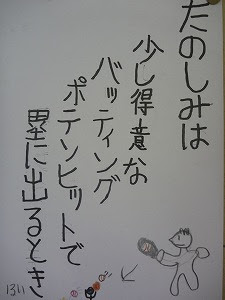 たのしみは
少し得意な
バッティング
ポテンヒットで
塁に出るとき